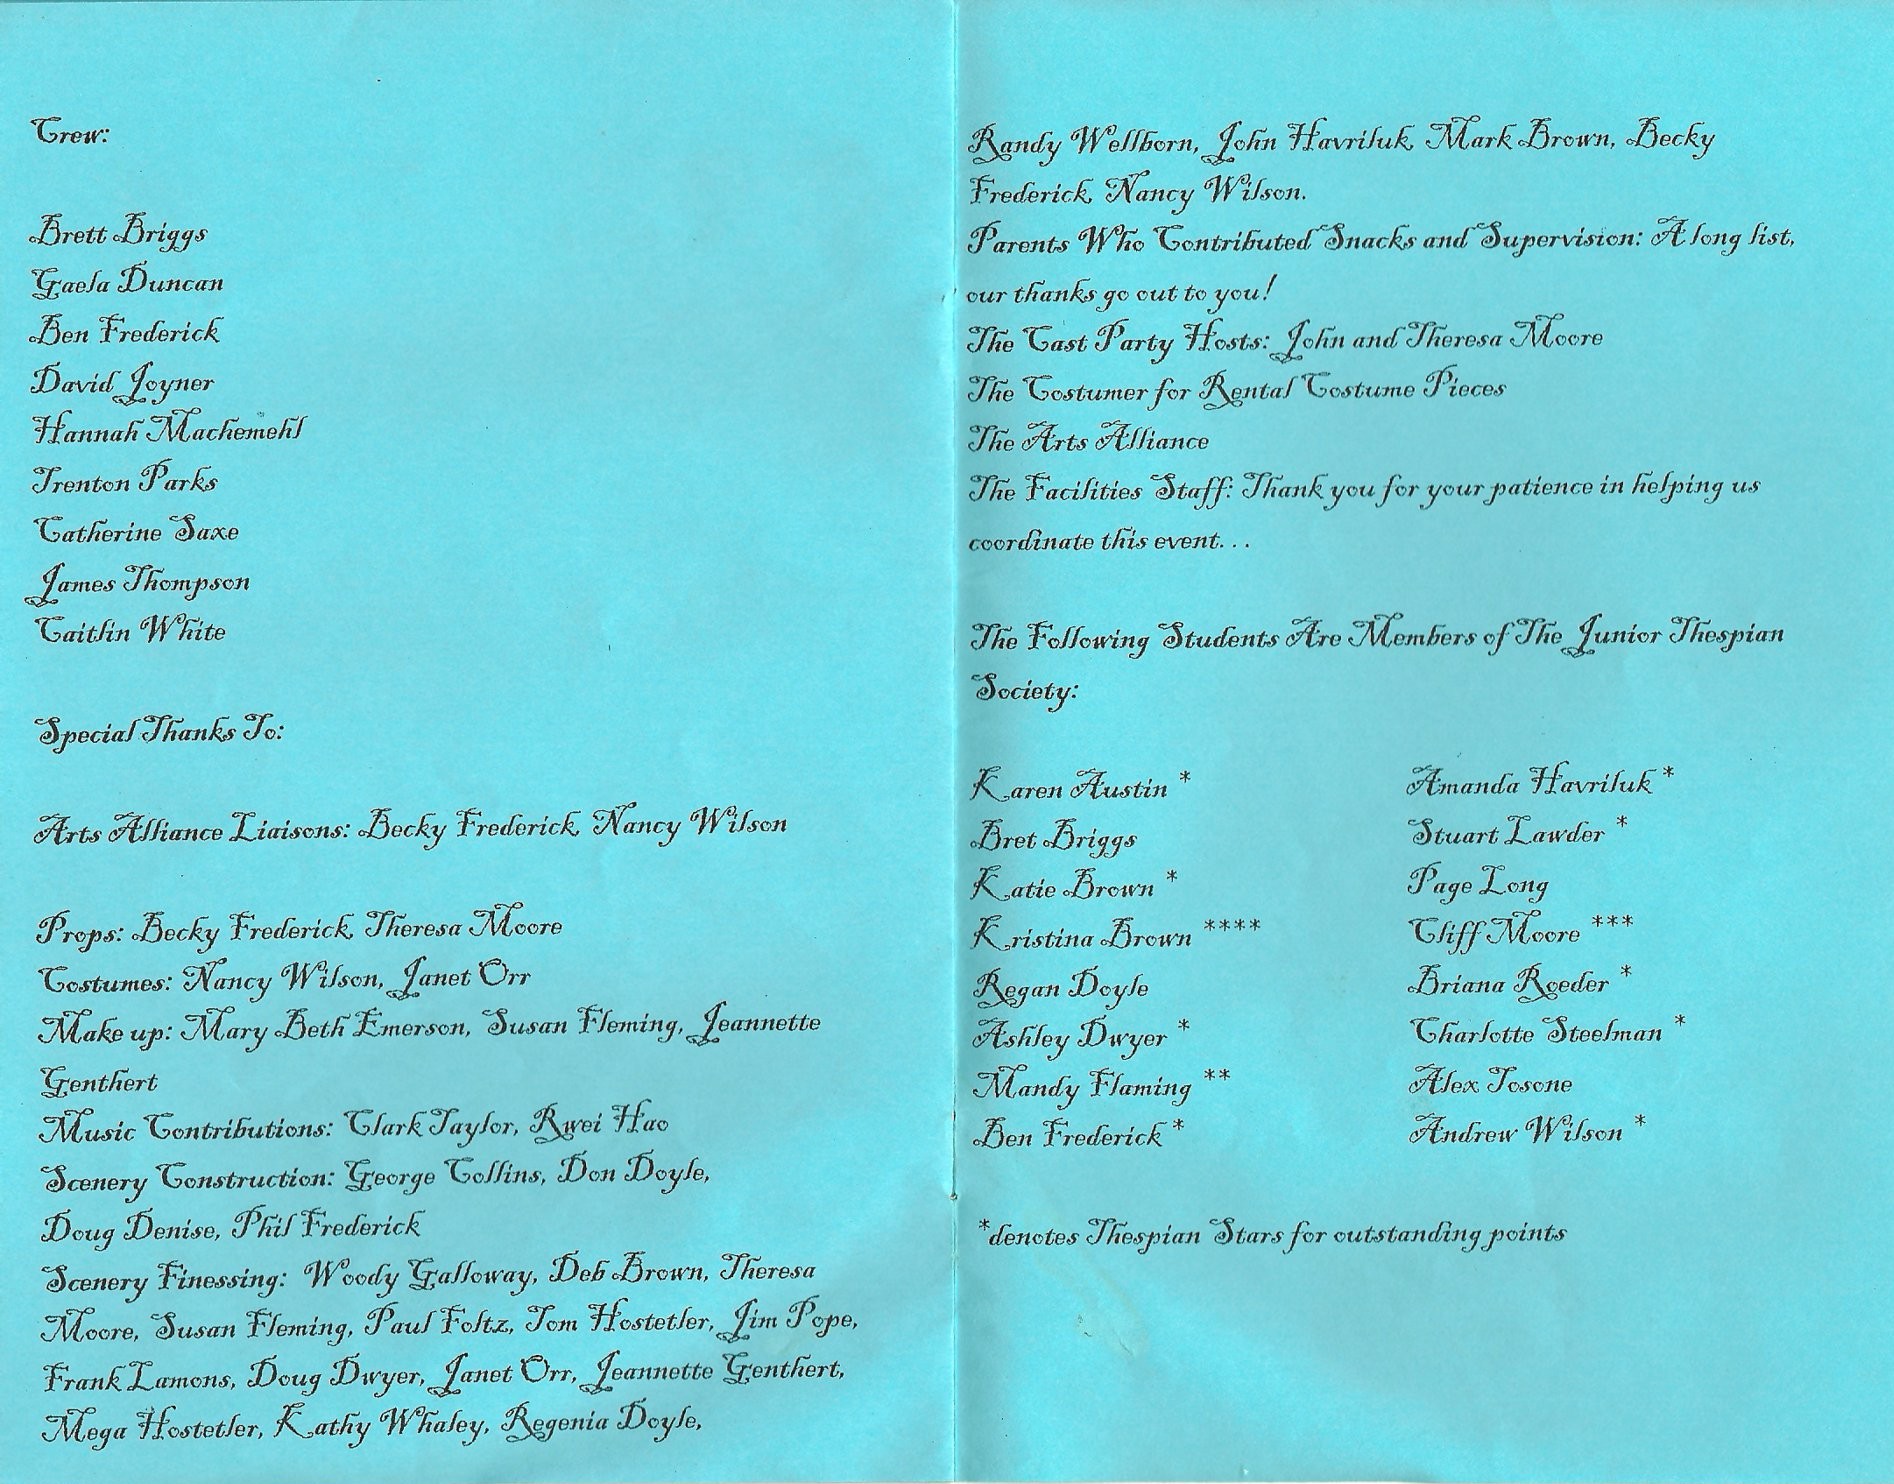 Crew:
Brett Briggs
Gaela Duncan
Ben Frederick
David Joyner
Hannah Machemehl
Trenton Parks
Catherine Saxe
James Thompson
Caitlin White
Special Thanks To:
Arts Alliance Liaisons: Becky Frederick, Nancy Wilson
Props: Becky Frederick, Theresa Moore
Costumes: Nancy Wilson, Janet Orr
Make up: Mary Beth Emerson, Susan Fleming, Jeannette
Genthert
Music Contributions: Clark Taylor, Rwei Hao
Scenery Construction: George Collins, Don Doyle,
Doug Denise, Phil Frederick
Scenery Finessing: Woody Galloway, Deb Brown, Theresa
Moore, Susan Fleming, Paul Foltz, Tom Hostetler, Jim Pope,
Frank Lamons, Doug Dwyer, Janet Orr, Jeannette Genthert,
Mega Hostetler, Kathy Whaley, Regenia Doyle,
Randy Wellborn, John Havriluk, Mark Brown, Becky
Frederick, Nancy Wilson.
Parents Who Contributed Snacks and Supervision: A long list,
our thanks go out to you!
The Cast Party Hosts: John and Theresa Moore
The Costumer for Rental Costume Pieces
The Arts Alliance
The Facilities Staff: Thank you for your patience in helping us
coordinate this event...
The Following Students Are Members of The Junior Thespian
Society:
Karen Austin *
Bret Briggs
Katie Brown *
Kristina Brown ****
Regan Doyle
Ashley Dwyer *
Mandy Flaming **
Ben Frederick *
Amanda Havriluk *
Stuart Lawder *
Page Long
Cliff Moore ***
Briana Roeder *
Charlotte Steelman *
Alex Tosone
Andrew Wilson *
*denotes Thespian Stars for outstanding points